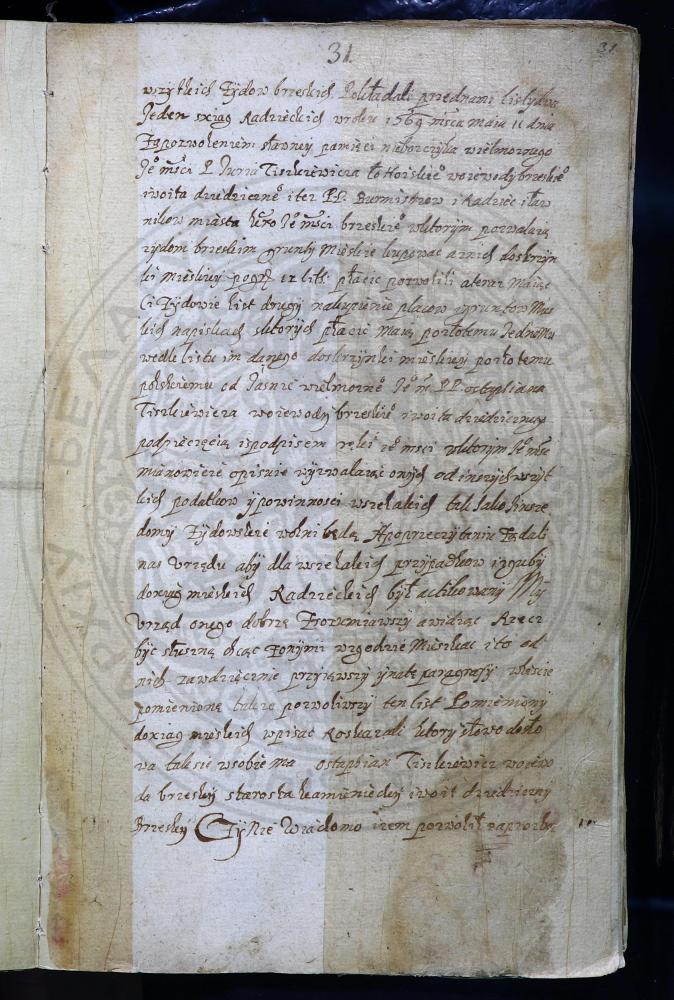 31
31
wszytkich Żydow brzeskich Pokładali przednami listy dwa
Jeden sxiąg Radzieckich wroku 1569 msca Maia 11 dnia
Zapozwoleniem sławney pamięci nieboszczyka wielmożnego
Je° mści P. Juria Tiszkiewicza woiewody brzeskie°
iwoita dziedziczne° itez PP. Burmistrzow i Radziec iław
nikow miasta Je° mści brzeskie° wktorym pozwalaią
zydom brzeskim grunty Mieskie kupowac aznich doskrzyn
ki mieskiey płacic pozwolili ateraz Maiąc
Ci Żydowie list drugy nakupienie placow igruntow Mies
kich sktorych płacic maią poszłotemu
wedle listu im danego doskrzynki mieskiey poszłotemu
polskiemu od Jasnie wielmozne° Je° m PP. ostaphana
Tiszkiewicza woiewody brzeskie° iwoita dziedzicznego
podpieczęcią ispodpisem ręki Je° msci wktorym Je° msc
mianowicie opisuie wyzwalaiąc onych od inszych wszyt
kich podatkow ypowinnosci wszelakich tak iako Jnsze
domy Żydowskie wolni będą Apoprzeczytaniu Żądali
nas Urzędu aby dla wszelakich przypadkow izguby
doxiąg mieskich Radzieckich był actikowany My
Urząd onego dobrze Zrozumiawszy awidząc Rzecz
byc słuszną chcąc zonymi wzgodzie Mieszkac ito od
nich zawdzięcznie przyiąwszy ynate paragrafy
pomienione także pozwoliwszy ten list Pomieniony
doxiąg mieskich wpisac Roskazali ktory słowo dosło
wa tak sie wsobie ma ostaphian Tiszkiewicz woiewo
da brzeskiy starosta kamienieckiy iwoit dziedziczny
Brzeskiy Czynie Wiadomo izem pozwolił